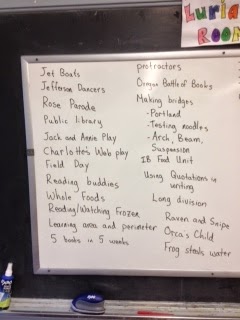 Luria
Room
Jet Boats
Jefferson Dancers
Rose Parade
Public library
Jack and Annie Play
Charlotte's Web play
Field Day
Reading buddies
Whole Foods
Reading/Watching Frozen
Learning area and perimeter
5 books in 5 weeks
protractors
Oregon Battle of Books
Making bridges
- Portland
- Testing noodles
- Arch, Beam,
Suspension
IB Food Unit
Using Quotations in
writing
Long division
Raven and Snipe
Orca's Child
Frog steals water